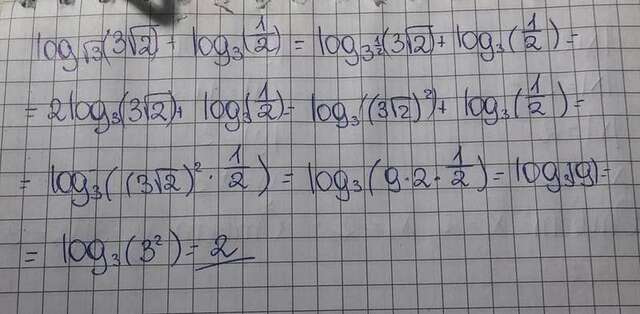 log√3(3√2) + log₃(1/2) = log₃^(1/2)(3√2) + log₃(1/2) =
= 2log₃(3√2) + log₃(1/2) = log₃((3√2)²) + log₃(1/2) =
= log₃((3√2)² · 1/2) = log₃(9·2·1/2) = log₃(9) =
= log₃(3²) = 2